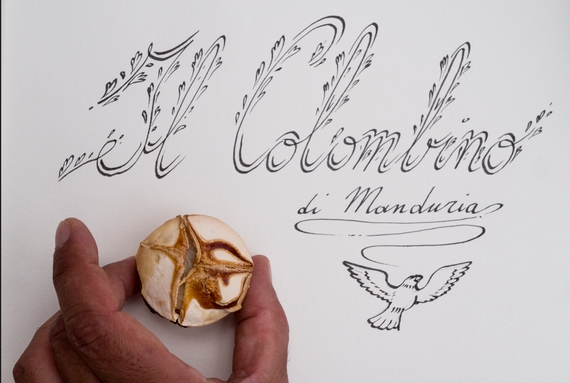 Il Colombino
di Manduria